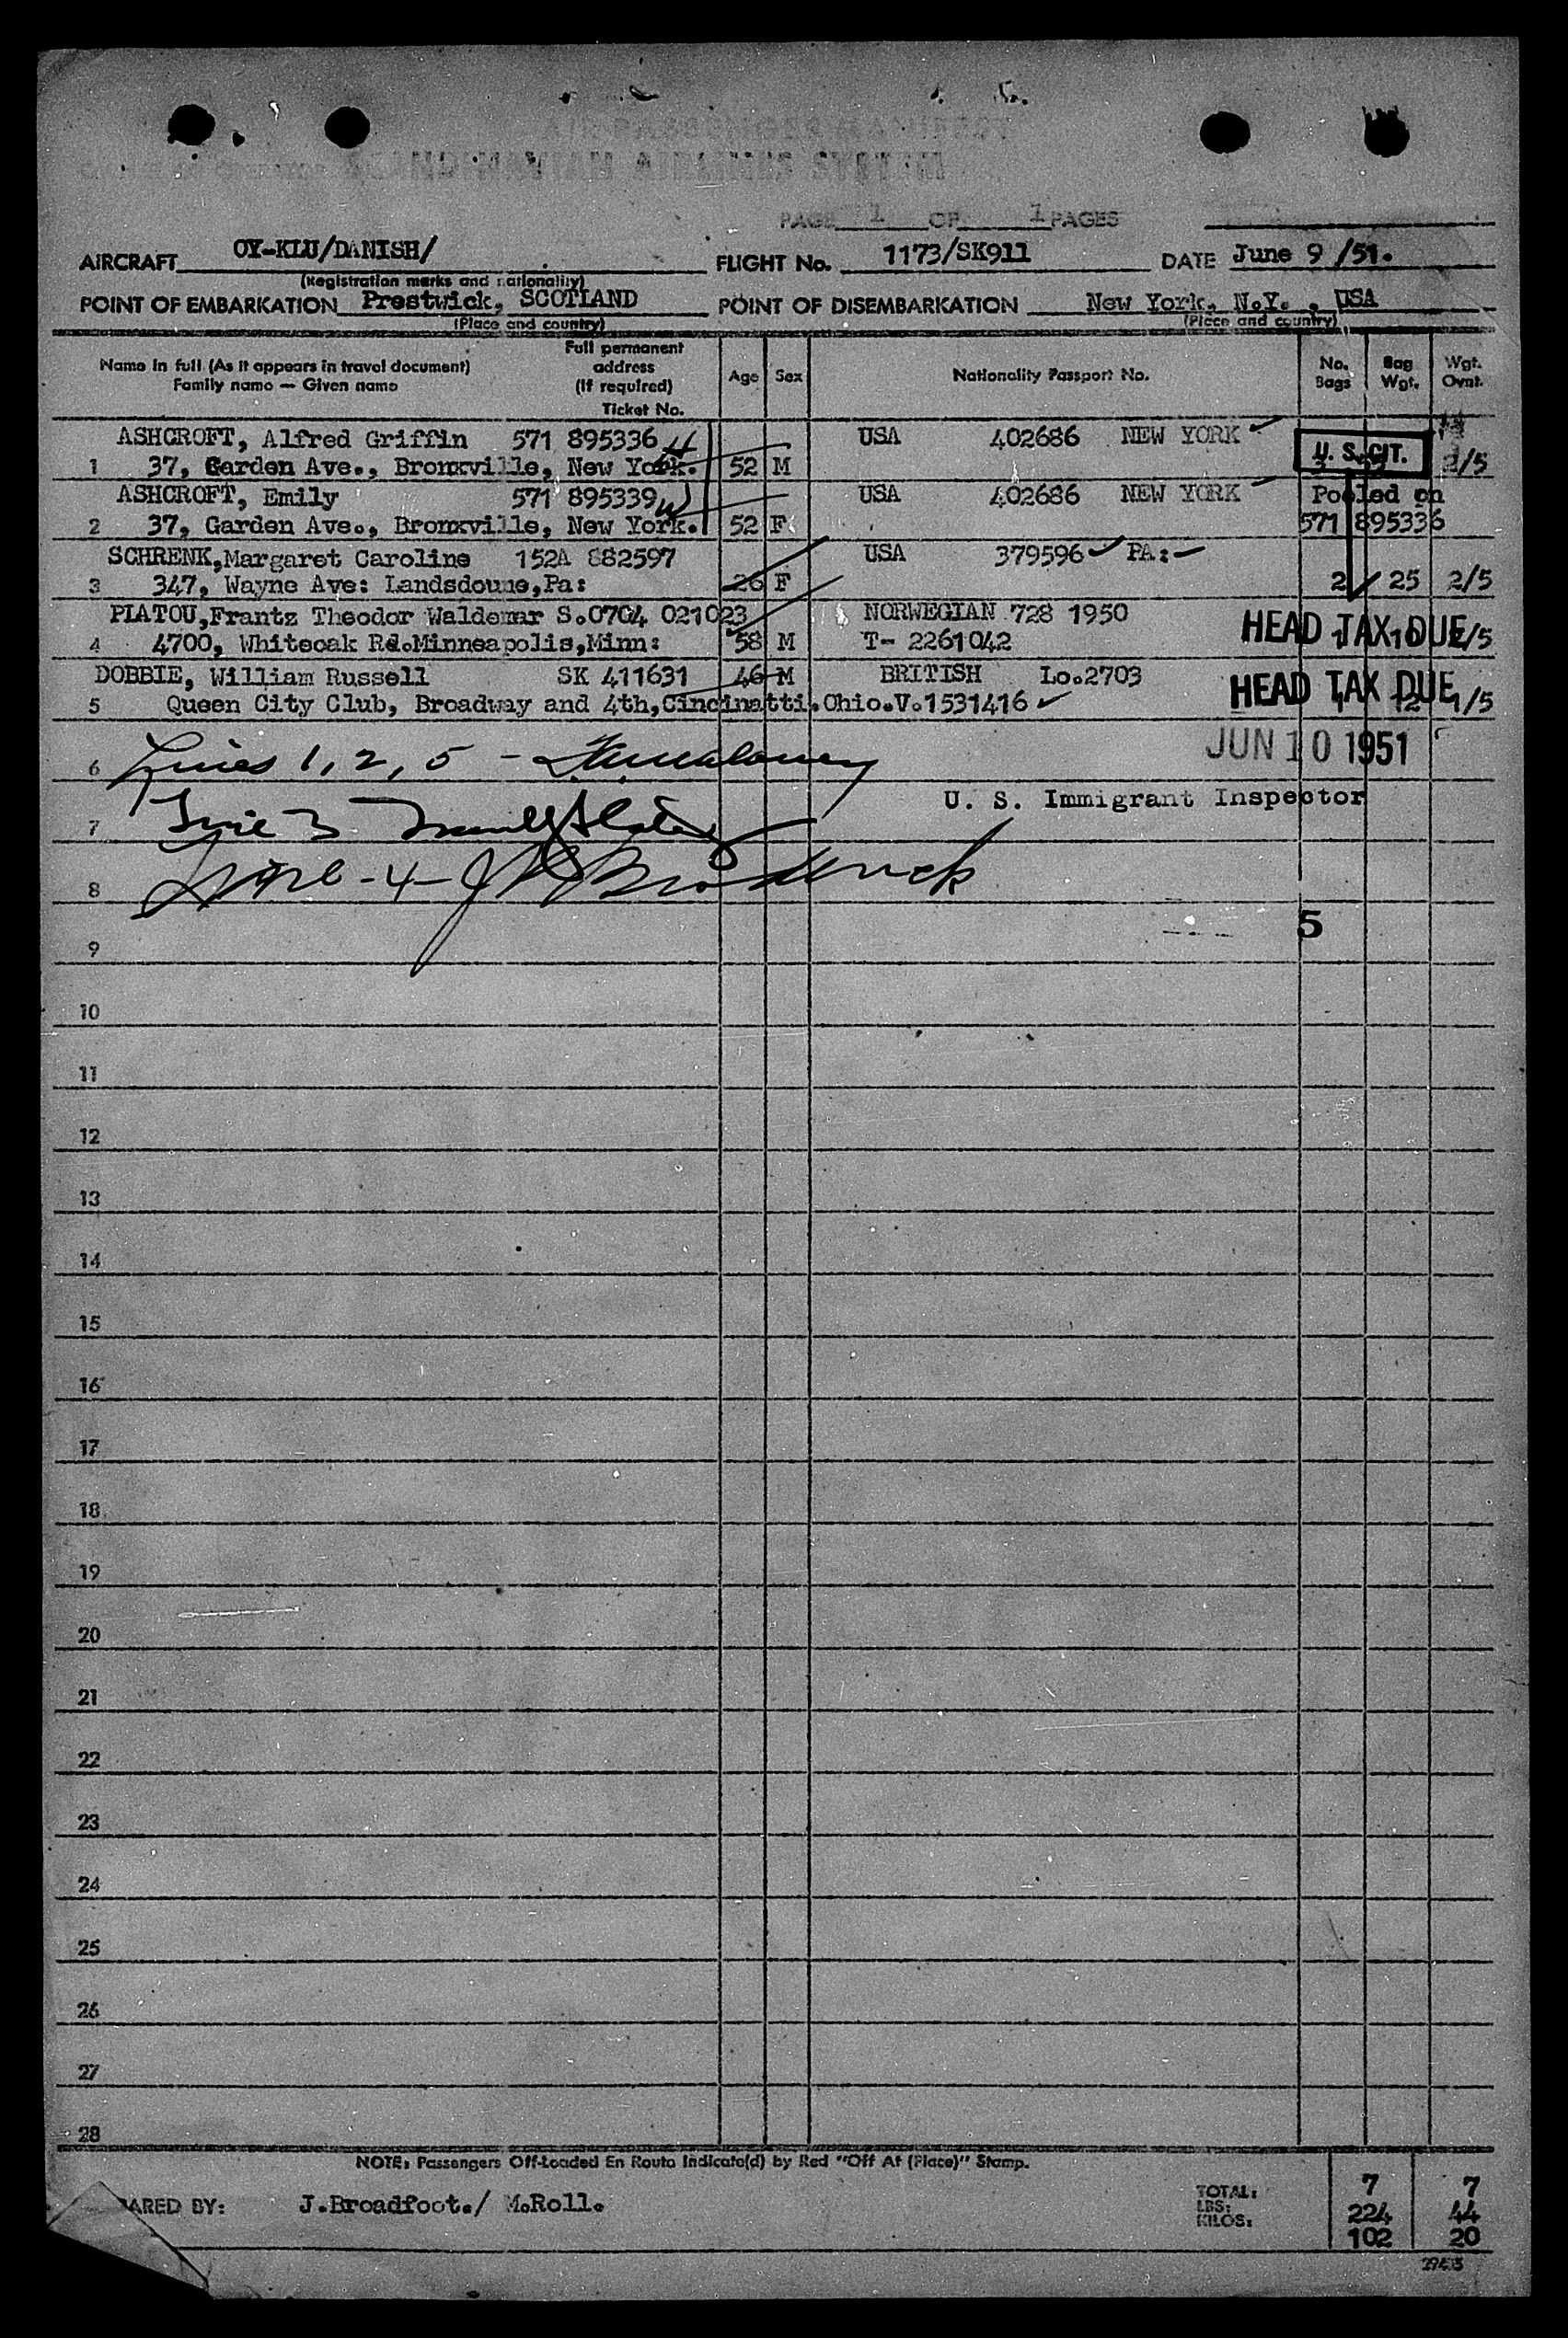 AIR PASSENGER MANIFEST
SCANDINAVIAN AIRLINES SYSTEM
PAGE 1 OF 1 PAGES
AIRCRAFT OY-KLU/DANISH/ FLIGHT No. 1173/SK911 DATE June 9 /51.
(Registration marks and nationality)
POINT OF EMBARKATION Prestwick, SCOTLAND POINT OF DISEMBARKATION New York, N.Y. , USA
(Place and country) (Place and country)
Name in full (As it appears in travel document) Family name — Given name
Full permanent address (If required) Ticket No.
Age Sex Nationality Passport No. No. Bags Bag Wgt. Wgt. Ovnt.
ASHCROFT, Alfred Griffin 571 895336 H USA 402686 NEW YORK U. S. CIT.
1 37, Garden Ave., Bronxville, New York. 52 M 2/5
ASHCROFT, Emily 571 895339 W USA 402686 NEW YORK Pooled on
2 37, Garden Ave., Bronxville, New York. 52 F 571 895336
SCHRENK,Margaret Caroline 152A 882597 USA 379596 PA:
3 347, Wayne Ave: Landsdoune,Pa: 26 F 2 25 2/5
PLATOU,Frantz Theodor Waldemar S.0704 021023 NORWEGIAN 728 1950
4 4700, Whiteoak Rd.Minneapolis,Minn: 58 M T- 2261042 HEAD TAX DUE /5
DOBBIE, William Russell SK 411631 46 M BRITISH Lo.2703 HEAD TAX DUE
5 Queen City Club, Broadway and 4th,Cincinatti.Ohio.V.1531416 1 12 1/5
6 Lines 1, 2, 5 - JUN 10 1951
U. S. Immigrant Inspector
7 Line 3
8 Line - 4 - Brodrick
5
9
10
11
12
13
14
15
16
17
18
19
20
21
22
23
24
25
26
27
28
NOTE: Passengers Off-Loaded En Route Indicate(d) by Red "Off At (Place)" Stamp.
ARED BY: J.Broadfoot./ M.Roll.
TOTAL: 7 7
LBS: 224 44
KILOS: 102 20